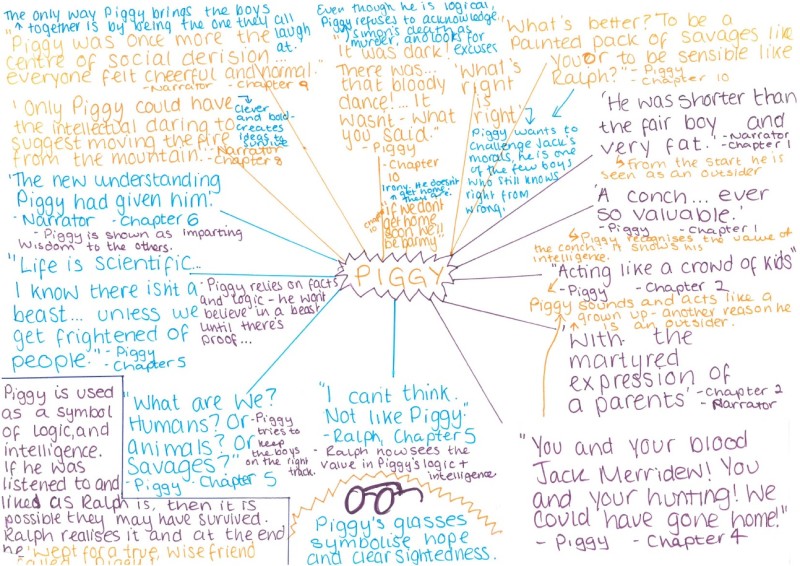 The only way Piggy brings the boys
together is by being the one they all
laugh
at.
"Piggy was once more the
centre of social derision...
everyone felt cheerful and normal."
- Narrator - Chapter 9
'Only Piggy could have
the intellectual daring to
suggest moving the fire
from the mountain.'
- Narrator
- Chapter 8
Clever
and bold -
creates
ideas to
survive
'The new understanding
Piggy had given him.'
- Narrator - Chapter 6
- Piggy is shown as imparting
wisdom to the others.
"Life is scientific...
I know there isn't a
beast... unless we
get frightened of
people." - Piggy
- Chapter 5
- Piggy relies on facts
and logic - he won't
believe in a beast
until there's
proof...
Even though he is logical,
Piggy refuses to acknowledge
Simon's death as
murder, and looks for
excuses
"It was dark!
There was...
that bloody
dance!... It
wasn't - what
you said."
- Piggy
- Chapter
10
Irony. He doesn't
get home,
they are.
if we don't
get home
soon we'll
be barmy
Chapter
10
"What's
right
is
right"
Piggy wants to
challenge Jack's
morals, he is one
of the few boys
who still knows
right from
wrong.
"What's better? To be a
Painted pack of savages like
you or to be sensible like
Ralph?" - Piggy
- Chapter 10
'He was shorter than
the fair boy and
very fat.' - Narrator
- Chapter 1
From the start he is
seen as an outsider
'A conch... ever
so valuable.'
- Piggy - Chapter 1
Piggy recognises the value of
the conch. It shows his
intelligence.
"Acting like a crowd of kids"
- Piggy - Chapter 2
Piggy sounds and acts like a
grown up - another reason he
is an outsider.
'With the
martyred
expression of
a parents' - Chapter 2
- Narrator
PIGGY
Piggy is used
as a symbol
of logic, and
intelligence.
If he was
listened to and
liked as Ralph is, then it is
possible they may have survived.
Ralph realises it and at the end
he 'wept for a true, wise friend
called Piggy'
"What are we?
Humans? Or
animals? Or
Savages?"
- Piggy - Chapter 5
- Piggy
tries to
keep
the boys
on the right
track.
"I can't think.
Not like Piggy."
- Ralph, Chapter 5
- Ralph now sees the
value in Piggy's logic +
intelligence
Piggy's glasses
symbolise hope
and clear sightedness.
"You and your blood
Jack Merridew! You
and your hunting! We
could have gone home!"
- Piggy - Chapter 4